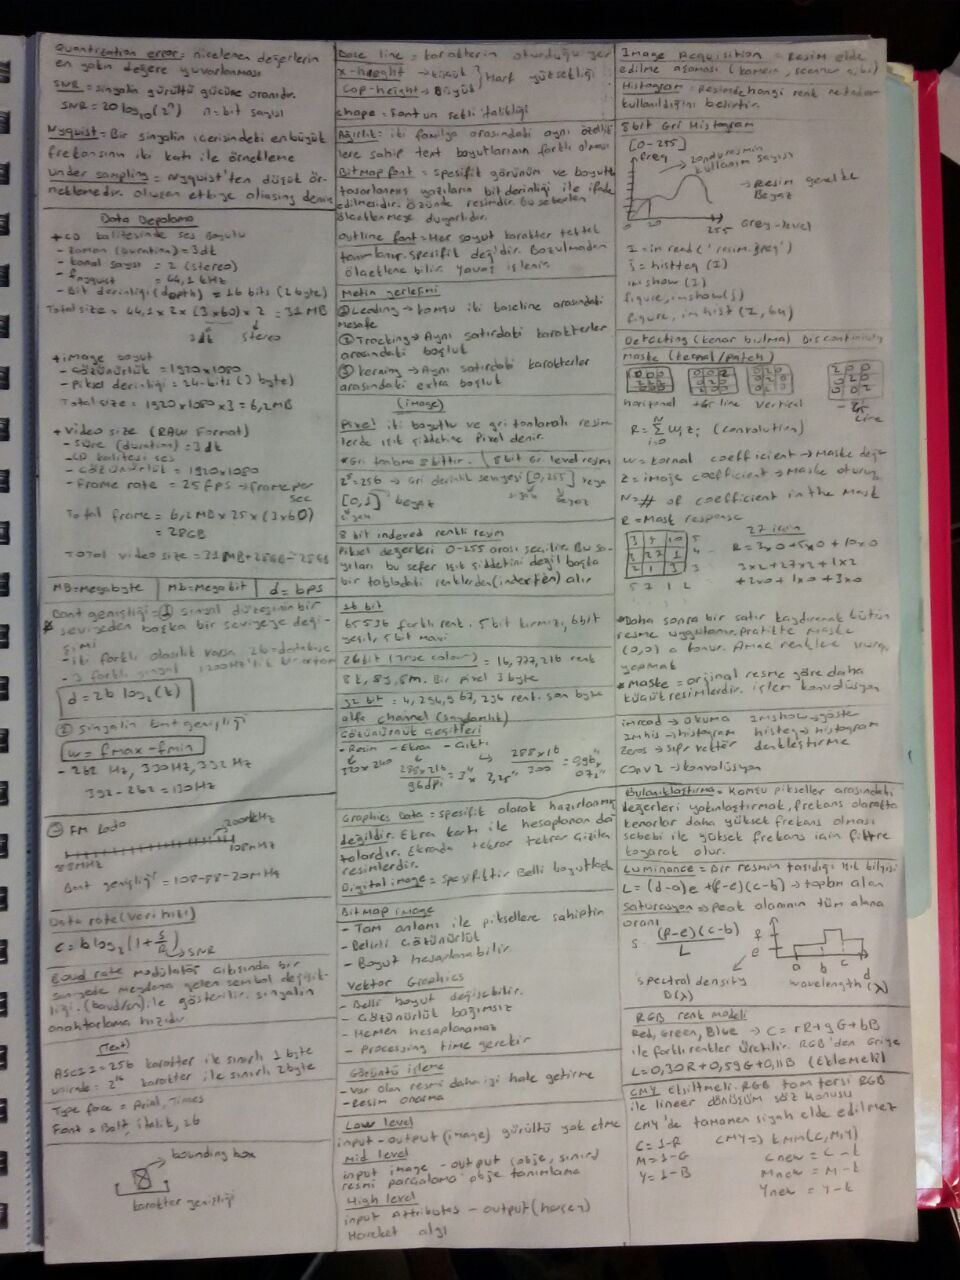 Quantization error = nicelenen değerlerin
en yakın değere yuvarlanması
SNR = singalın gürültü gücüne oranıdır.
SNR = 20 log10(2^n) n = bit sayısı
Nyquist = Bir sinyalin içerisindeki en büyük
frekansının iki katı ile örnekleme
under sampling = Nyquist'ten düşük ör-
neklemedir. oluşan etkiye aliasing denir
Data Depolama
+ CD kalitesinde ses boyutu
- zaman (duration) = 3dk
- kanal sayısı = 2 (stereo)
- f nyquist = 44,1 kHz
- Bit derinliği (depth) = 16 bits (2 byte)
Total size = 44,1 x 2 x (3x60) x 2 = 31 MB
3dk stereo
+ image boyut
- çözünürlük = 1920x1080
- piksel derinliği = 24-bits (3 byte)
Total size = 1920x1080x3 = 6,2MB
+ video size (RAW Format)
- süre (duration) = 3dk
- CD kalitesi ses
- çözünürlük = 1920x1080
- Frame rate = 25 fps → frame per
sec
Total frame = 6,2MB x 25 x (3x60)
= 28GB
TOTAL video size = 31MB + 28GB
MB = Megabyte Mb = Megabit d = bps
Bant genişliği = ① sinyal düzeyinin bir
seviyeden başka bir seviyeye deği-
şimi
d = 2b log2(k)
② sinyalin bant genişliği
w = fmax - fmin
- 262 Hz, 330Hz, 392 Hz
392 - 262 = 130Hz
FM Radio
200kHz
88MHz 108MHz
Bant genişliği = 108-88 = 20MHz
Data rate (veri hızı)
c = b log2(1 + S/N) → SNR
Baud rate modülatör çıkışında bir
saniyede meydana gelen sembol değişik-
liği. (baud/sn) ile gösterilir. sinyalin
anahtarlama hızıdır.
(Text)
ASCII = 256 karakter ile sınırlı 1 byte
unicode = 2^16 karakter ile sınırlı 2byte
Type face = Arial, Times
Font = Bold, italik, 26
bounding box
karakter genişliği
Base line = karakterin oturduğu yer
x-height → küçük
Cap-height → Büyük
Harf yüksekliği
shape = Font un şekli kalıklığı
Ağırlık: iki familya arasındaki aynı özellik
lere sahip text boyutlarının farklı olması
Bitmap font = spesifik görünüm ve boyutta
tasarlanmış yazıların bit derinliği ile ifade
edilmesidir. Özünde resimdir. Bu sebepten
ölçeklenmeye duyarlıdır.
Outline font = Her soyut karakter tek tek
tanımlanır. spesifik değildir. Bozulmadan
ölçeklene bilir. Yavaş işlenir
Metin yerleşimi
① Leading → komşu iki baseline arasındaki
mesafe
② Tracking → Aynı satırdaki karakterler
arasındaki boşluk
③ kerning → Aynı satırdaki karakterler
arasındaki extra boşluk
(image)
Pixel iki boyutlu ve gri tonlamalı resim
lerde ışık şiddetine Pixel denir.
* Gri tonlama 8 bittir. 8 bit Gri level resim
2^8 = 256 → Gri derinlik seviyesi [0,255] veya
[0,1] beyaz siyah beyaz
siyah
8 bit indexed renkli resim
Piksel değerleri 0-255 arası seçilir. Bu sa-
yıları bu sefer ışık şiddetini değil başka
bir tablodaki renklerden (indexten) alır
16 bit
65536 farklı renk. 5 bit kırmızı, 6bit
yeşil, 5 bit mavi
24bit (True colour) = 16,777,216 renk
8k, 8y, 8m. Bir pixel 3 byte
32 bit = 4,294,967,296 renk. son byte
alfa channel (saydamlık)
Çözünürlük Çeşitleri
- Resim - Ekran - Çıktı
320x240
288x216 / 96dpi = 3" x 2,25"
288x216 / 300 = 0,96", 0,72"
Graphics Data = spesifik olarak hazırlanmış
değildir. Ekran kartı ile hesaplanan da
talardır. Ekranda tekrar tekrar çizilen
resimlerdir.
Digital image = spesifiktir Belli boyuttadır
BitMap image
- Tam anlamı ile piksellere sahiptir
- Belirli Çözünürlük
- Boyut hesaplanabilir.
Vektor Graphics
- Belli boyut değişebilir.
- Çözünürlük bağımsız
- Hemen hesaplanamaz
- Processing time gerekir
Görüntü işleme
- Var olan resmi daha iyi hale getirme
- Resim onarma
Low level
input - output (image) gürültü yok etme
Mid level
input image - output (obje, sınır)
resmi parçalama obje tanımlama
High level
input Attributes - output
Hareket algı
Image Acquisition = Resim elde
edilme aşaması (kamera, scanner v.b.)
Histogram = Resimde hangi renk ne kadar
kullanıldığını belirtir.
8bit Gri Histogram
[0-255]
freq
kullanım sayısı
→ Resim genelde
Beyaz
0 20 255 Grey-level
I = imread('resim.jpeg')
j = histeq(I)
imshow(I)
figure, imshow(j)
figure, imhist(I, 64)
Detecting (kenar bulma) Discontinuity
Maske (kernal/patch)
horizonal +45 line vertical -45 line
R = Σ wi zi (convolution)
i=0
w = kernal coefficient → Maske değ.
z = image coefficient → Maske oturan
N = # of coefficient in the Mask
R = Mask response
3 5 10 5
3 27 1 4
2 1 3 3
5 7 1 2
27 için
R = 3x0 + 5x0 + 10x0
3x2 + 27x2 + 1x2
+ 2x0 + 1x0 + 3x0
* Daha sonra bir satır kaydırarak bütün
resme uygulanır. pratikte maske
(0,0) a konur. Amaç
yapmak
* Maske = orjinal resme göre daha
küçük resimlerdir. işlem konvolüsyon
imread → okuma imshow → göster
imhis → histogram histeq → histogram
zeros → sıfır vektör denkleştirme
conv2 → konvolüsyon
Bulanıklaştırma = Komşu pikseller arasındaki
değerleri yakınlaştırmak, frekans olarakta
kenarlar daha yüksek frekans olması
sebebi ile yüksek frekans için filtre
koyarak olur.
Luminance = Bir resmin taşıdığı ışık bilgisi
L = (d-a)e + (f-e)(c-b) → toplam alan
Saturasyon → peak alanının tüm alana
oranı
S = (f-e)(c-b) / L
f
e
a b c d
spectral density wavelength (λ)
D(λ)
RGB renk modeli
Red, Green, Blue → C = rR + gG + bB
ile farklı renkler üretilir. RGB'den Griye
L = 0,30R + 0,59G + 0,11B (Eklemeli)
CMY Eksiltmeli. RGB tam tersi RGB
ile lineer dönüşüm söz konusu
CMY'de tamamen siyah elde edilmez
C = 1-R CMY ⇒ k min(C,M,Y)
M = 1-G Cnew = C - k
Y = 1-B Mnew = M - k
Ynew = Y - k